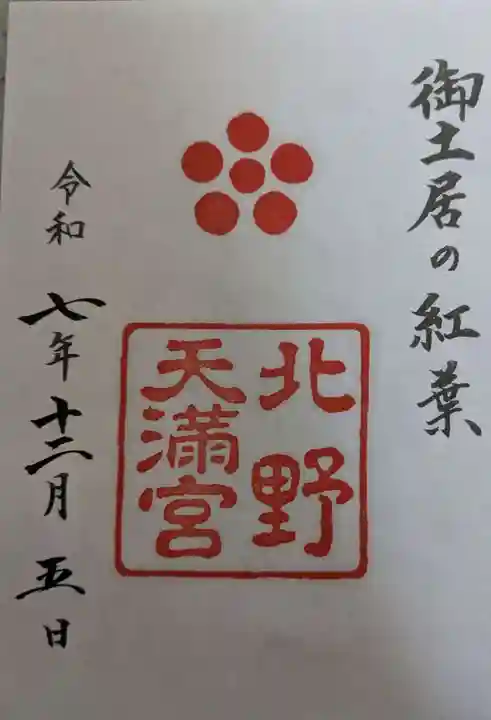 御土居の紅葉
北野
天満宮
令和七年十二月五日